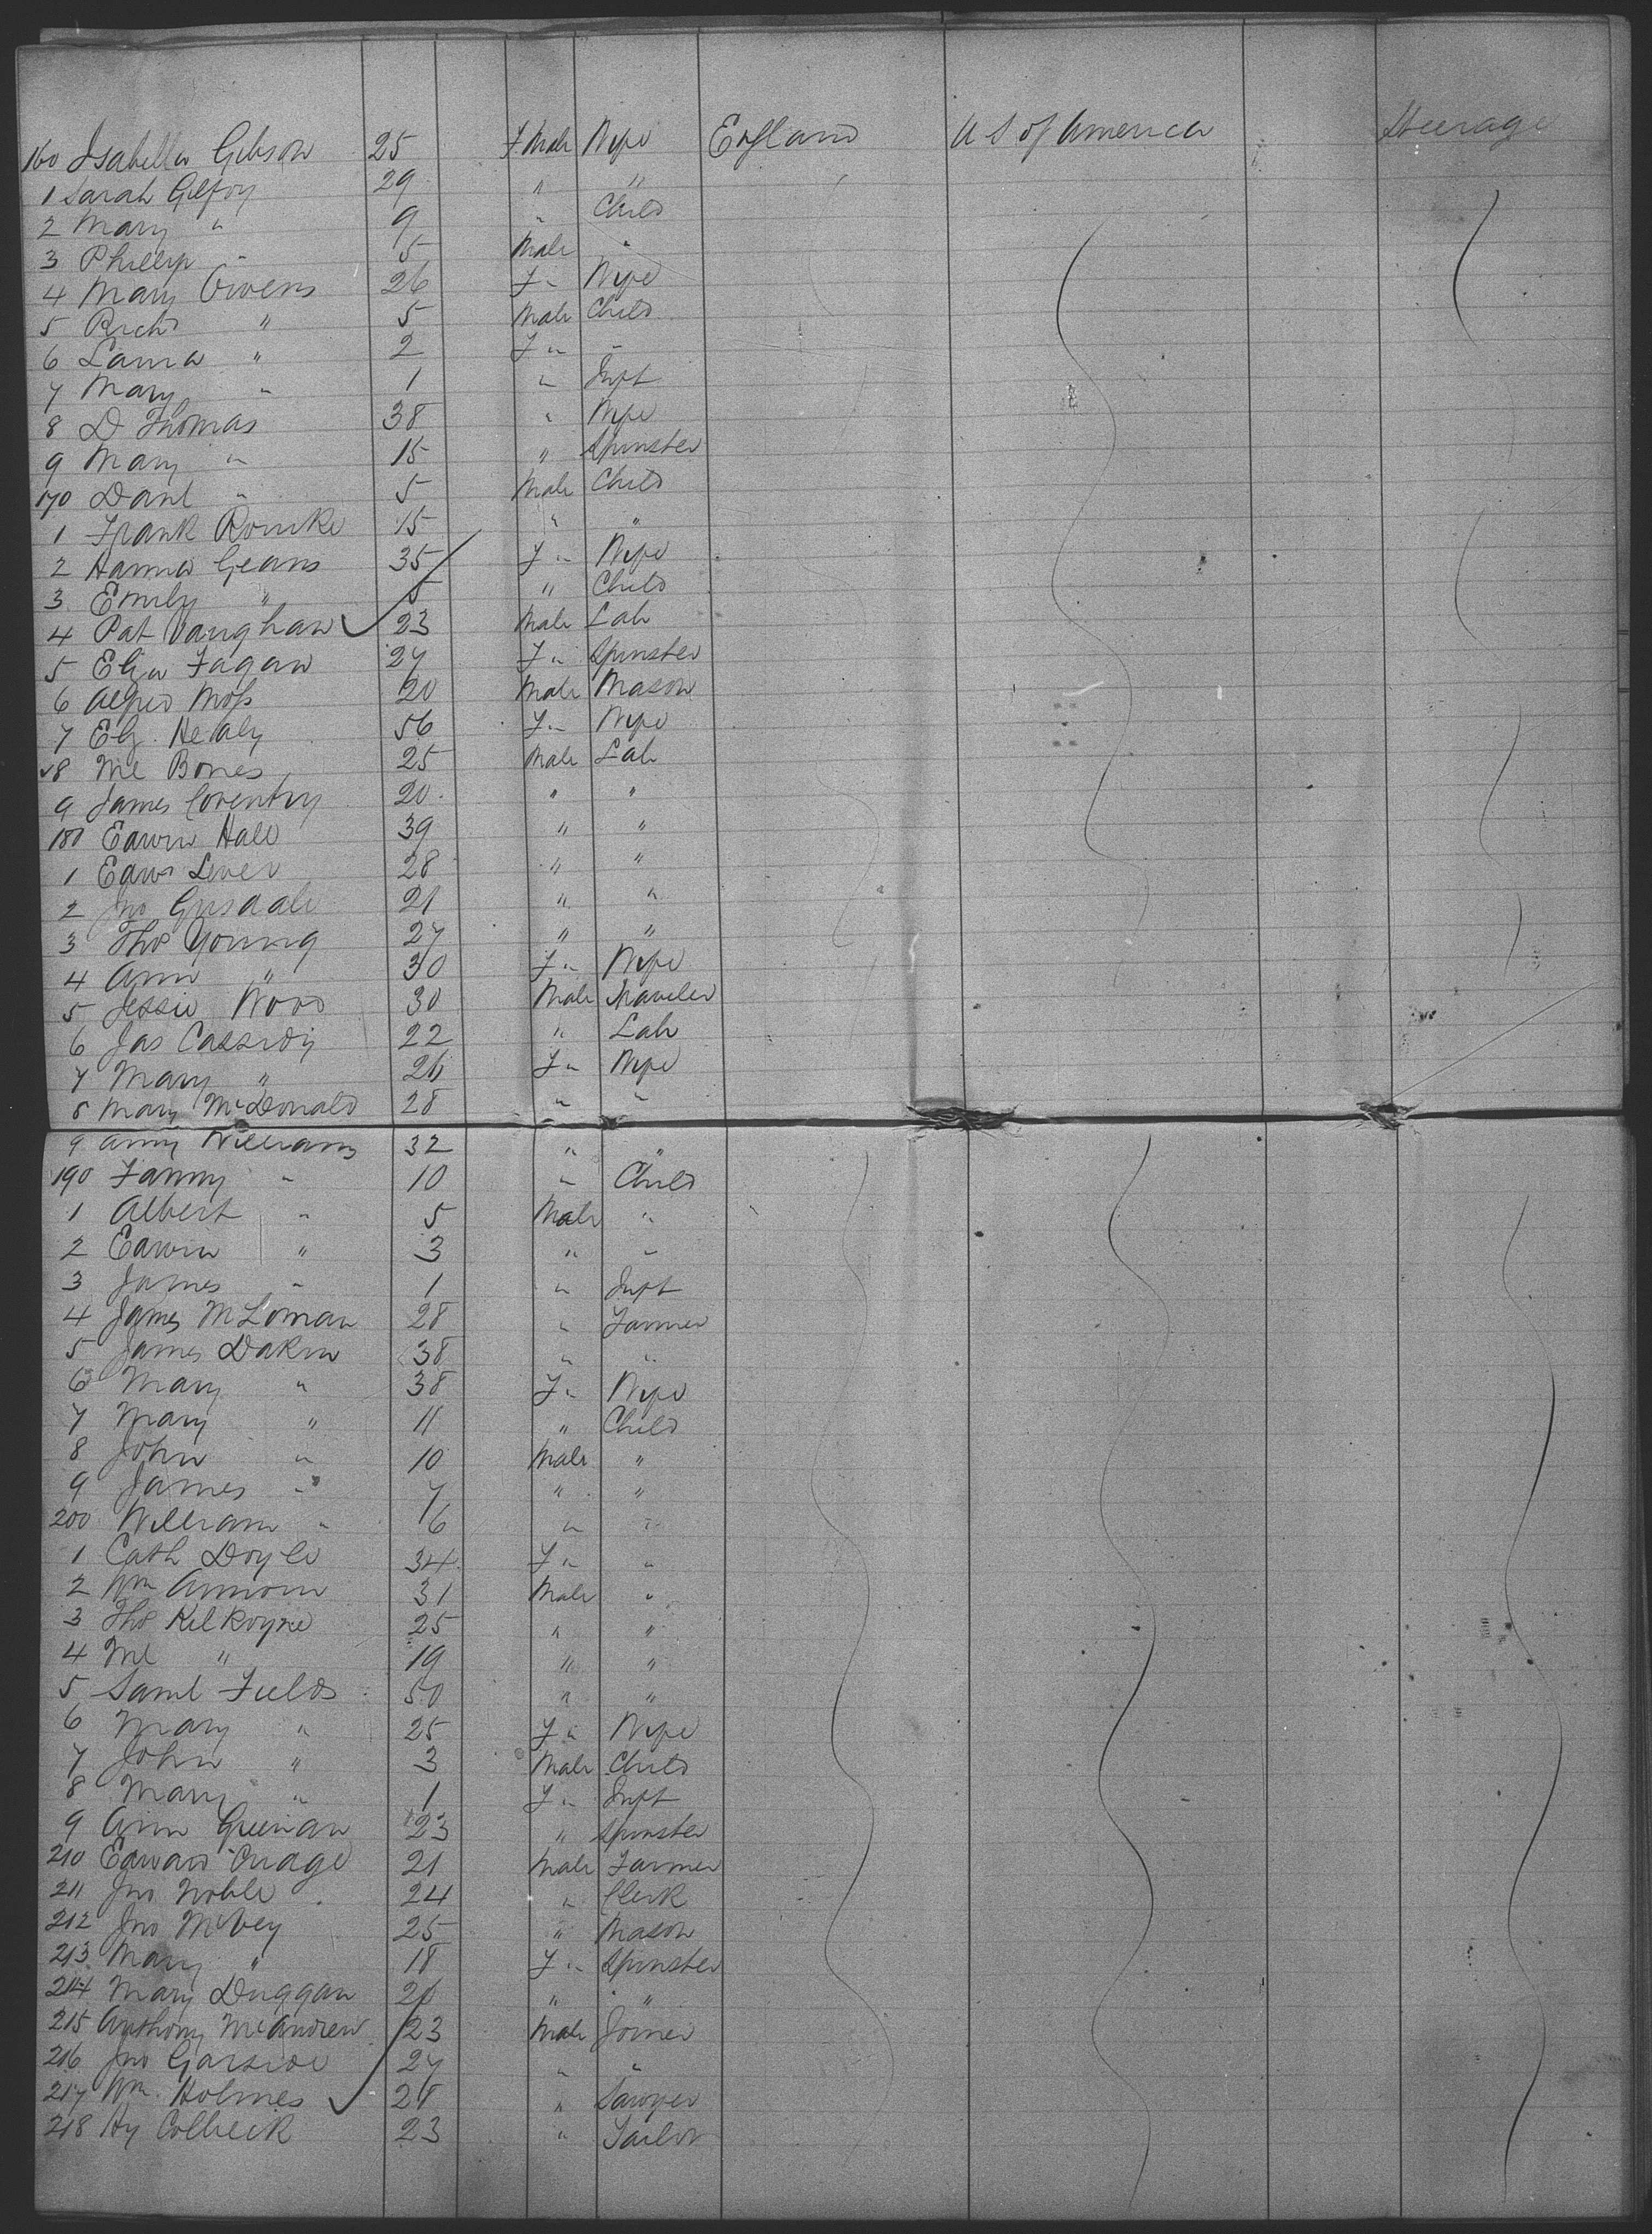 160 Isabella Gibson 25 F Male Wife England U S of America Steerage
1 Sarah Gilfoy 29 " "
2 Mary " 9 " Child
3 Phillip " 5 Male "
4 Mary Owens 26 F " Wife
5 Richd " 5 Male Child
6 Laura " 2 F " "
7 Mary " 1 " Inft
8 D Thomas 38 " Wife
9 Mary " 15 " Spinster
170 Danl " 5 Male Child
1 Frank Rourke 15 " "
2 Hanna Geans 35 F " Wife
3 Emily " 5 " Child
4 Pat Vaughan 23 Male Lab
5 Eliza Fagan 27 F " Spinster
6 Alfred Moss 20 Male Mason
7 Eliz. Healy 56 F " Wife
8 Ml Bones 25 Male Lab
9 James Coventry 20 " "
180 Edwin Hall 39 " "
1 Edwd Lever 28 " "
2 Jno Grisdale 21 " "
3 Thos Young 27 " "
4 Ann " 30 F " Wife
5 Jessie Wood 30 Male Traveler
6 Jas Cassidy 22 " Lab
7 Mary " 26 F " Wife
8 Mary McDonald 28 " "
9 Amy Williams 32 " "
190 Fanny " 10 " Child
1 Albert " 5 Male "
2 Edwin " 3 " "
3 James " 1 " Inft
4 James McLoman 28 " Farmer
5 James Dakin 38 " "
6 Mary " 38 F " Wife
7 Mary " 11 " Child
8 John " 10 Male "
9 James " 7 " "
200 William " 6 " "
1 Cath Doyle 34 F " "
2 Wm 31 Male "
3 Thos Kilkoyne 25 " "
4 Ml " 19 " "
5 Saml Fields 50 " "
6 Mary " 25 F " Wife
7 John " 3 Male Child
8 Mary " 1 F " Inft
9 Ann Greenan 23 " Spinster
210 Edward 21 Male Farmer
211 Jno Noble 24 " Clerk
212 Jno McVey 25 " Mason
213 Mary " 18 F " Spinster
214 Mary Duggan 20 " "
215 Anthony McAndrew 23 Male Joiner
216 Jno Garside 27 " "
217 Wm. Holmes 28 " Sawyer
218 Hy Colbeck 23 " Tailor